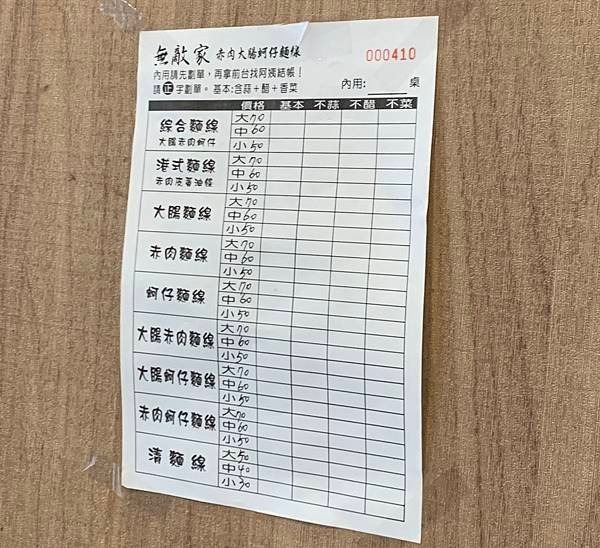 無敵家 赤肉大腸蚵仔麵線 000410
內用請先劃單，再拿前台找阿姨結帳！
請正字劃單。基本:含蒜+醋+香菜 內用: 桌
價格 基本 不蒜 不醋 不菜
綜合麵線 大70
大腸赤肉蚵仔 中60
小50
港式麵線 大70
赤肉皮蛋油條 中60
小50
大腸麵線 大70
中60
小50
赤肉麵線 大70
中60
小50
蚵仔麵線 大70
中60
小50
大腸赤肉麵線 大70
中60
小50
大腸蚵仔麵線 大70
中60
小50
赤肉蚵仔麵線 大70
中60
小50
清麵線 大50
中40
小30